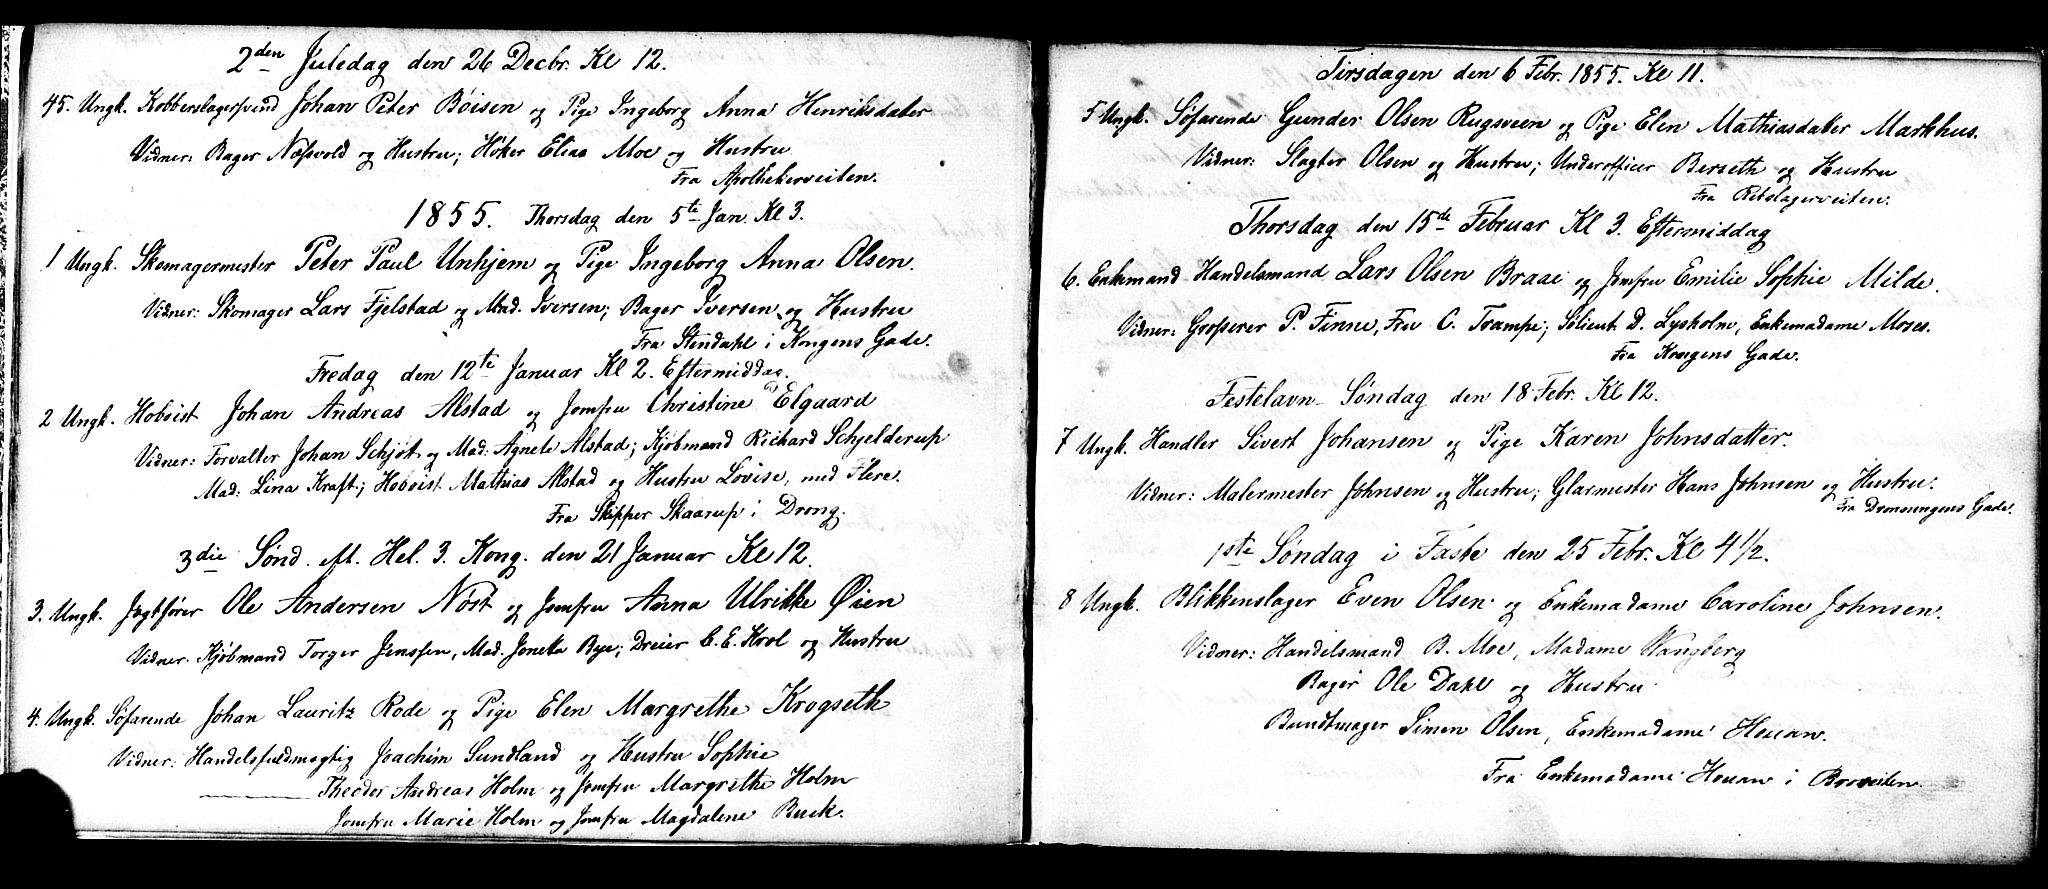 2den Juledag den 26 Decbr. Kl 12.
45. Ungk. Kobberslagersvend Johan Peter Bøisen og Pige Ingeborg Anna Henriksdater
Vidner: Bager Næsvold og Hustru; Høker Elias Moe og Hustru
Fra Apothekerveiten.
1855. Thorsdag den 5te Jan. Kl 3.
1 Ungk. Skomagermester Peter Paul Unhjem og Pige Ingeborg Anna Olsen.
Vidner: Skomager Lars Fjelstad og Mad. Iversen; Bager Iversen og Hustru
Fra Stendahl i Kongens Gade.
Fredag den 12te Januar Kl 2. Eftermiddag.
2 Ungk. Hoboist Johan Andreas Alstad og Jomfru Christine Elgaard
Vidner: Forvalter Johan Schjøt og Mad: Agnete Alstad; Kjøbmand Richard Schjelderup
Mad: Lina Kraft; Hoboist Mathias Alstad og Hustru Lovise, med Flere.
Fra Skipper Skaarup i Drong.
3die Sønd. eft. Hel. 3. Kong. den 21 Januar Kl 12.
3. Ungk. Jægtfører Ole Andersen Nøst og Jomfru Anna Ulrikke Øien
Vidner. Kjøbmand Torger Jenssen, Mad. Joneta Bye; Dreier C. E. Krol og Hustru
4. Ungk. Søfarende Johan Lauritz Rode og Pige Elen Margrethe Krogseth
Vidner: Handelsfuldmægtig Joachim Sundland og Hustru Sophie
Theodor Andreas Holm og Jomfru Margrethe Holm
Jomfru Marie Holm og Jomfru Magdalene Buck.
Tirsdagen den 6 Febr. 1855. Kl 11.
5 Ungk. Søfarende Gunder Olsen Rugsveen og Pige Elen Mathiasdater Markhus.
Vidner: Slagter Olsen og Hustru; Underofficer Berseth og Hustru
Fra Rebslagerveiten.
Thorsdag den 15de Februar Kl 3. Eftermiddag
6. Enkemand Handelsmand Lars Olsen Braae og Jomfru Emilie Sophie Milde.
Vidner: Grosserer P. Finne, Fru C. Trampe; Sølieut. D. Lysholm, Enkemadame Moses.
Fra Kongens Gade.
Festelavn Søndag den 18 Febr. Kl 12.
7 Ungk. Handler Sivert Johansen og Pige Karen Johnsdatter.
Vidner: Malermester Johnsen og Hustru; Glarmester Hans Johnsen og Hustru.
Fra Dronningens Gade.
1ste Søndag i Faste den 25 Febr. Kl 4 1/2.
8 Ungk. Blikkenslager Even Olsen og Enkemadame Caroline Johnsen.
Vidner: Handelsmand B. Moe, Madame Wangberg
Bager Ole Dahl og Hustru
Bundtmager Simon Olsen, Enkemadame Houan.
Fra Enkemadame Houan i Borveiten.